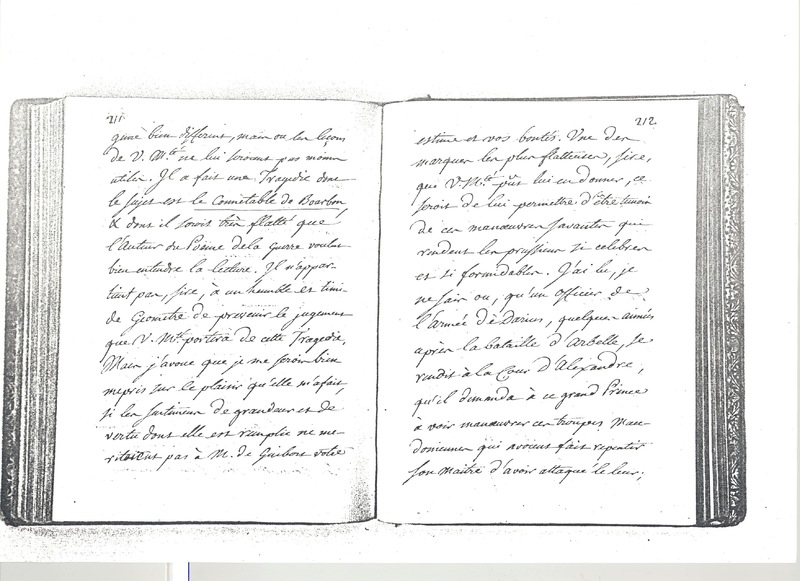 211
genre bien different, mais ou les leçons
de V. M.té ne lui seroient pas moins
utiles. Il a fait une Tragedie dont
le sujet est le Connétable de Bourbon,
& dont il seroit très flatté que
l'Auteur du Poëme de la Guerre voulut
bien entendre la lecture. Il n'appar-
tient pas, sire, à un humble et timi-
de Geometre de prevenir le jugement
que V. M.té portera de cette Tragedie,
Mais j'avoue que je me serois bien
mepris sur le plaisir qu'elle m'a fait,
si les sentimens de grandeur et de
vertu dont elle est remplie ne me-
ritoient pas à M. de Guibert votre
212
estime et vos bontés. Une des
marques les plus flatteuses, sire,
que V. M.té pût lui en donner, ce
seroit de lui permettre d'être temoin
de ces manœuvres savantes qui
rendent les prussiens si celebres
et si formidables. J'ai lu, je
ne sais ou, qu'un Officier de
l'armée de Darius, quelques années
après la bataille d'Arbelle, se
rendit à la Cour d'Alexandre,
qu'il demanda à ce grand Prince
à voir manœuvrer ces troupes Mace-
doniennes qui avoient fait repentir
son Maitre d'avoir attaqué le leur;